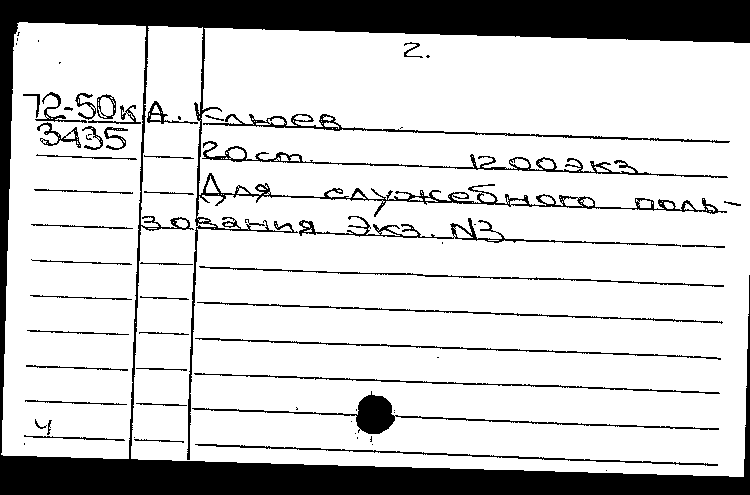 2.
72-50к А. Клюев
3435
20 ст. 1200экз.
Для служебного поль-
зования Экз. N3
Ч